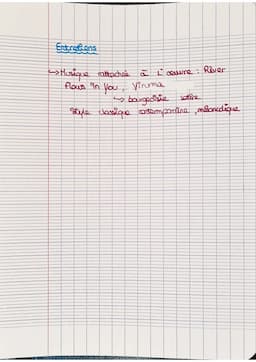 Entretiens
→ Musique rattachée à l'oeuvre : River
Flows In You, Yiruma
→ bourgeoisie
Style classique contemporaine, mélancolique